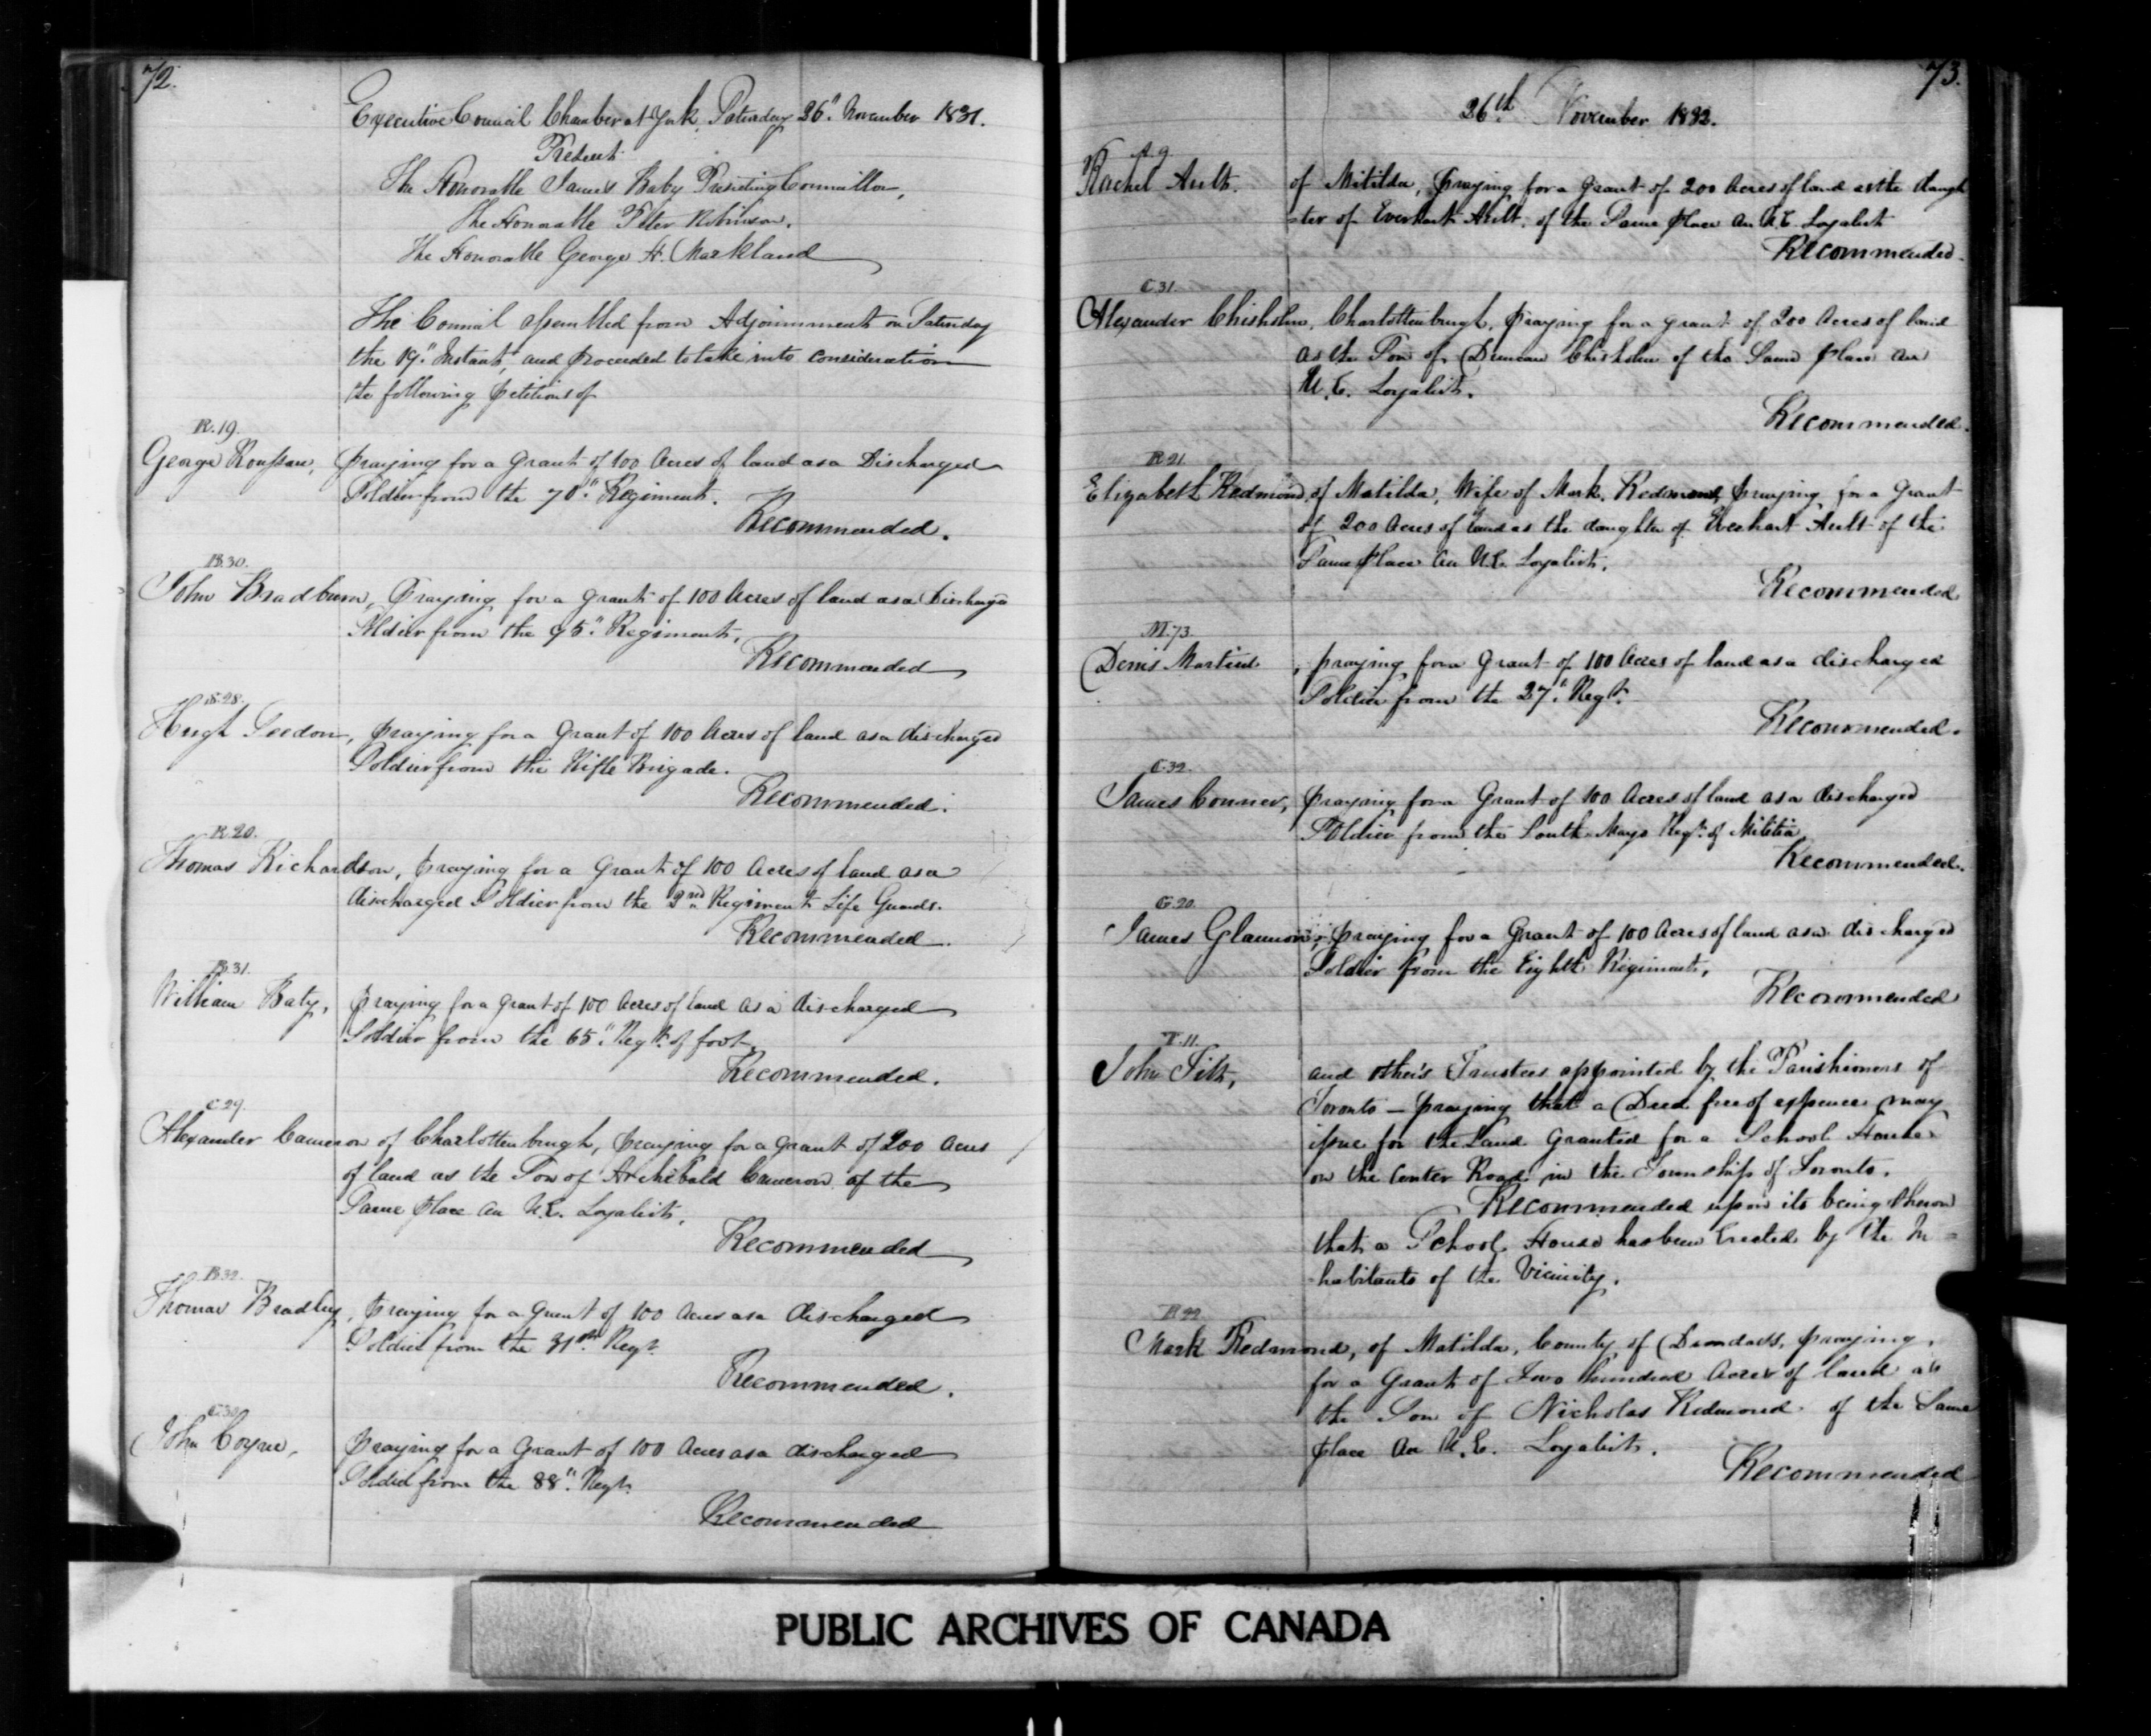 72.
Executive Council Chamber at York, Saturday 26" November 1831.
Present
The Honorable James Baby Presiding Councillor,
The Honorable Peter Robinson.
The Honorable George H. Markland
The Council assembled from Adjournment on Saturday
the 19" Instant, and proceeded to take into consideration
the following petitions of
R. 19.
George Roussau, praying for a Grant of 100 Acres of land as a Discharged
Soldier from the 70" Regiment.
Recommended.
B. 30.
John Bradburn, Praying for a grant of 100 Acres of land as a Discharged
Soldier from the 95" Regiment,
Recommended
S. 28.
Hugh Seedon, praying for a Grant of 100 Acres of land as a discharged
Soldier from the Rifle Brigade.
Recommended.
R. 20.
Thomas Richardson, praying for a Grant of 100 Acres of land as a
discharged Soldier from the 2nd Regiment Life Guards.
Recommended.
B. 31.
William Baty, praying for a grant of 100 Acres of land as a discharged
Soldier from the 65" Regt. of foot,
Recommended.
C. 29.
Alexander Cameron of Charlottenburgh, praying for a grant of 200 Acres
of land as the Son of Archibald Cameron of the
Same place an U.E. Loyalist,
Recommended
B. 32.
Thomas Bradley, praying for a Grant of 100 Acres as a discharged
Soldier from the 31st Regt.
Recommended.
C. 30.
John Coyne, praying for a Grant of 100 Acres as a discharged
Soldier from the 88" Regt.
Recommended
73.
26th November 1832.
A. 9.
Rachel Ault. of Matilda, praying for a Grant of 200 Acres of land as the daugh
=ter of Everhart Ault. of the Same place an U.E. Loyalist
Recommended.
C 31.
Alexander Chisholm, Charlottenburgh, praying for a grant of 200 Acres of land
as the Son of Duncan Chisholm of the Same place an
U.E. Loyalist.
Recommended.
R 21.
Elizabeth Redmond, of Matilda, Wife of Mark Redmond, praying for a Grant
of 200 Acres of land as the daughter of Everhart Ault of the
Same place an U.E. Loyalist,
Recommended
M. 73.
Denis Martin, praying for a Grant of 100 Acres of land as a discharged
Soldier from the 27" Regt.
Recommended.
C. 32.
James Conner, praying for a Grant of 100 Acres of land as a discharged
Soldier from the South Mayo Regt. of Militia,
Recommended.
G. 20.
James Glannon, praying for a Grant of 100 Acres of land as a discharged
Soldier from the Eighth Regiment,
Recommended
T. 11.
John Silk, and others Trustees appointed by the Parishioners of
Toronto — praying that a Deed free of expence may
issue for the Land Granted for a School House
on the Center Road in the Township of Toronto.
Recommended upon its being shewn
that a School House has been Erected by the In=
habitants of the Vicinity.
R 22
Mark Redmond, of Matilda, County of Dundas, praying
for a Grant of Two hundred Acres of land as
the Son of Nicholas Redmond of the Same
place an U.E. Loyalist.
Recommended
PUBLIC ARCHIVES OF CANADA